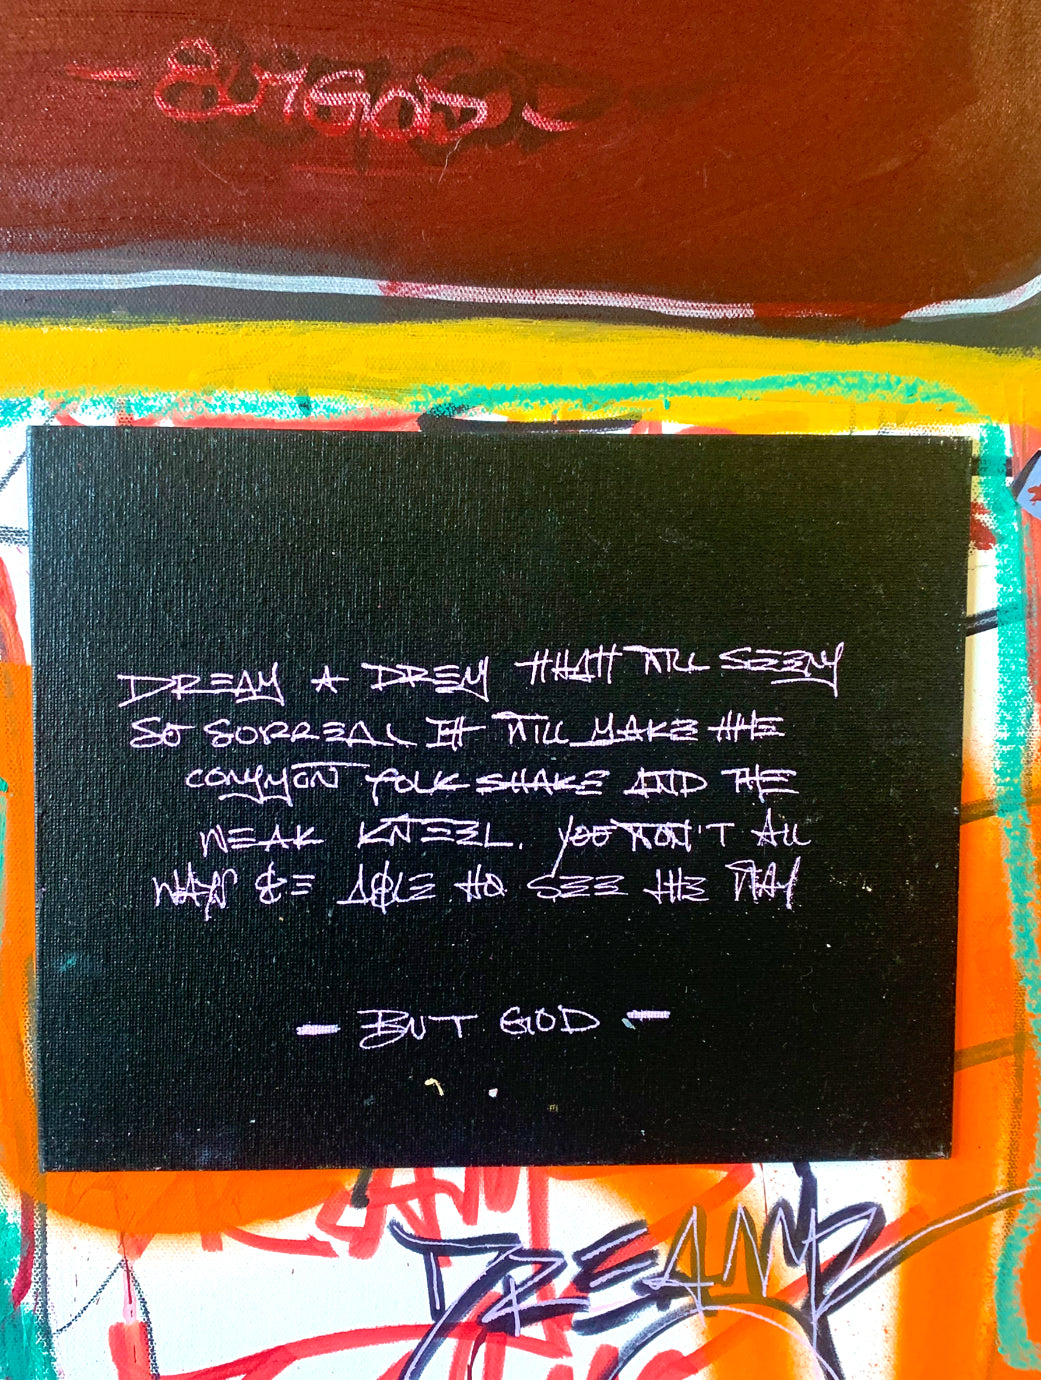 -BUTGOD-
DREAM A DREM THAT WILL SEEM
SO SORREAL IT WILL MAKE THE
COMMON FOLK SHAKE AND THE
WEAK KNEEL. YOO WON'T ALL
WAYS BE ABLE TO SEE THE WAY
- BUT GOD -
DREAM